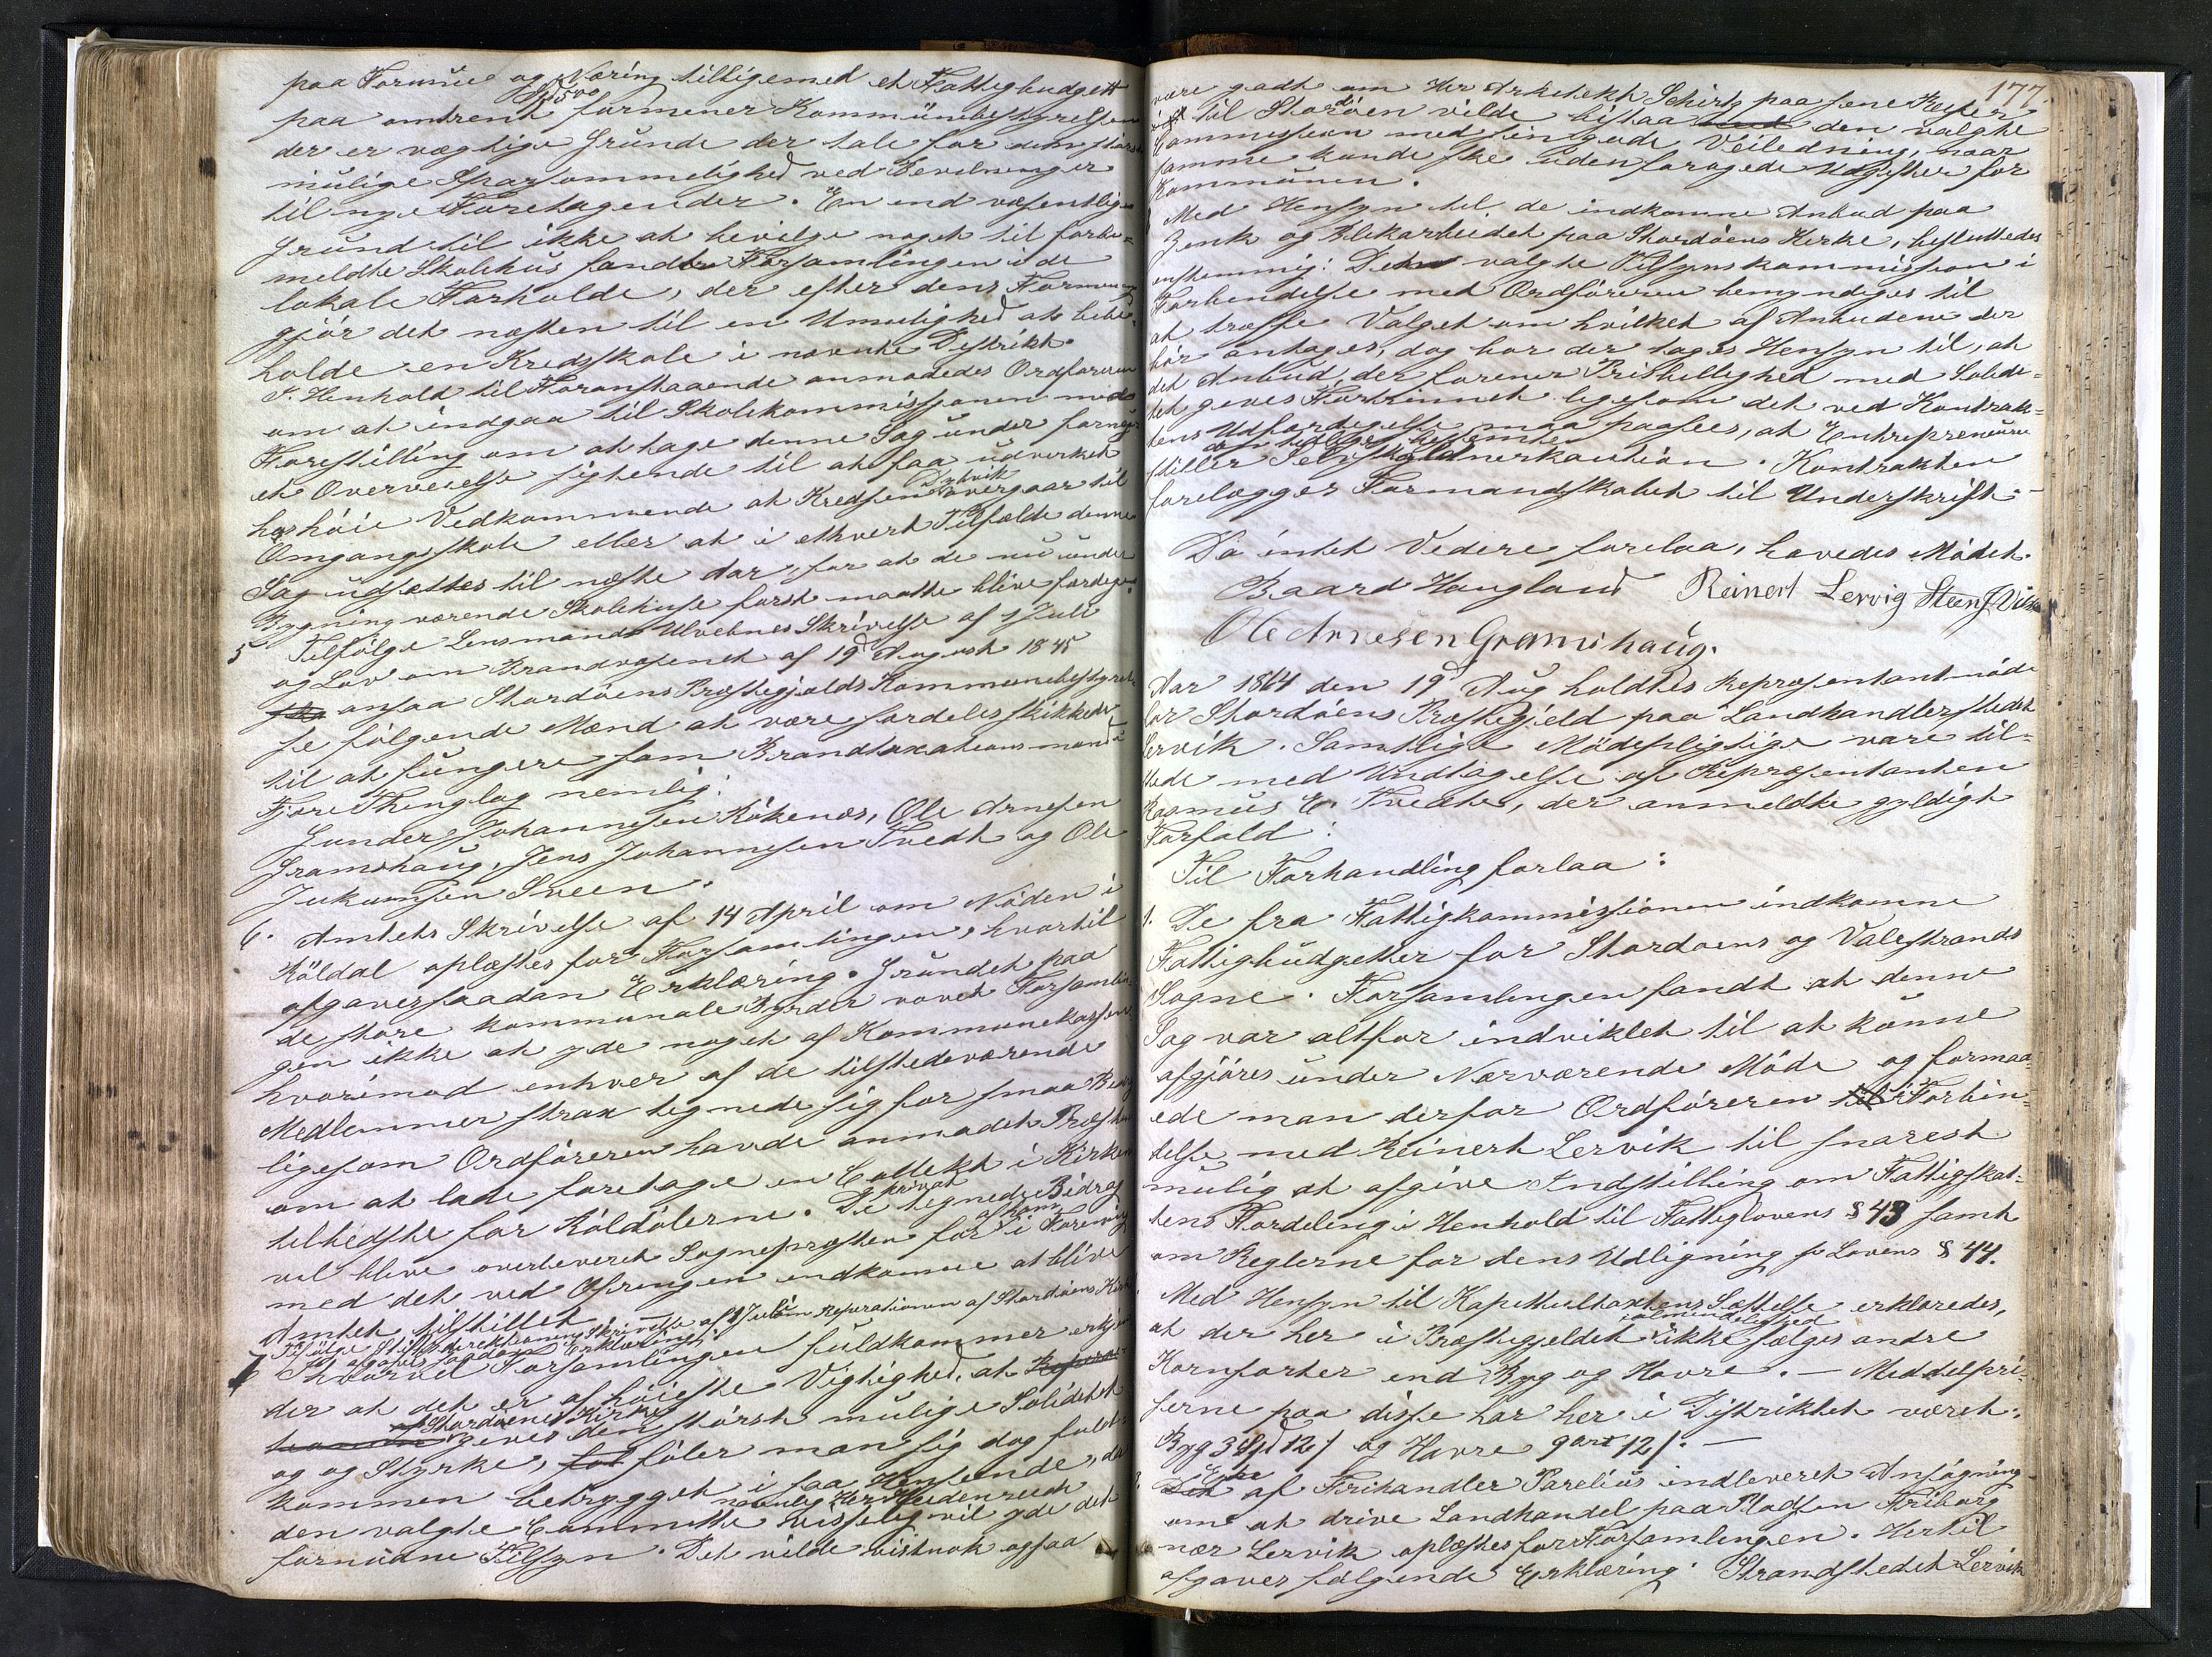 paa Formue og Næring tilligemed et Fattigbudgett
paa omtrent 500 formener Kommunebestyrelsen
der er vægtige Grunde der tale for den størst
mulige Sparsommelighed ved Bevilninger
til nye Foretagender. En end væsentligere
Grund til ikke at bevilge noget til forbe=
meldte Skolehus fandt Forsamlingen i de
lokale Forholde, der efter dens Formening
gjør det næsten til en Umulighed at bebe=
holde en Kredsskole i nævnte Distrikt.
I Henhold til Foranstaaende anmodedes Ordføreren
om at indgaa til Skolekommissjonen med
Forestilling om at tage denne Sag under forny=
et Overveielse sigtende til at faa udvirket
hos høie Vedkommende at Kredsen overgaar til
Omgangsskole eller at i ethvert Tilfælde denne
Sag udsættes til næste Aar, for at de nu under
Bygning værende Skolehuse først maatte blive færdige.
5 Tilfølge Lensmand Ulvebnes Skrivelse af 1 Juli
og Lov om Brandvæsenet af 19d August 1845
ansaa Stordøens Præstegjælds Kommunebestyrel=
se følgende Mænd at være fordeles skikkede
til at fungere som Brandtaxationsmænd i
Fjære Thinglag nemlig:
Gunder Johannesen Rökenæs, Ole Arnesen
Gramshaug, Jens Johannesen Tvedt og Ole
Jukumsen Sveen.
6. Amtets Skrivelse af 14 April om Nöden i
Röldal oplæstes for Forsamlingen, hvortil
afgaves saadan Erklæring. Grundet paa
de store kommunale Byrder vovet Forsamlin=
gen ikke at yde noget af Kommunekassen
hvorimod enhver af de tilstedeværende
Medlemmer strax tegnede sig for smaa Bidrag
ligesom Ordføreren havde anmodet Præsten
om at lade foretage en Collekt i Kirken
tilbedste for Röldölerne. De privat tegnede Bidrag
vil blive overleveret Sognepræsten for af ham i Forening
med det ved Ofringen indkomne at blive
Amtet tilstillet.
7 Tilfølge Stiftsdirektionens Skrivelse af Juli om Reparationen af Stordøens Kirke
afgaves saadan Erklæring:
Hvorvel Forsamlingen fuldkommen erkjen=
der at det er af høieste Vigtighed, at
Stordøens Kirke gives den størst mulige Soliditet
og og Styrke, føler man sig dog fuld=
kommen betrygget i saa Henseende, da
den valgte Committe navnlig Her Heidenreich visselig vil yde det
fornødne Tilsyn. Det vilde vistnok ogsaa
177.
være godt om Her Arkitekt Schirtz paa sine Reiser
til Stordöen vilde bistaa den valgte
Commission med sin gode Veiledning, naar
samme kunde ske uden forøgede Udgifter for
Kommunen.
Med Hensyn til de indkomne Anbud paa
Zink og Blikarbeidet paa Stordöens Kirke, besluttedes
enstemmig: Den valgte Tilsynskommission i
Forbindelse med Ordföreren bemyndiges til
at træffe Valget om hvilket af Anbudene der
bör antages, dog bör der tages Hensyn til, at
det Anbud, der forener Prisbillighed med Solidi=
tet gives Fortrinnet ligesom det ved Kontrak=
tens Udfærdigelse maa paasees, at Entrepreneuren
stiller Selvskyldnerkaution. Kontrakten
forelægges Formandskabet til Underskrift.
Da intet Videre forelaa, hævedes Mödet.
Baard Haugland Reinert Lervig Steens J Vik
Ole Arnesen Gramshaug.
Aar 1864 den 19d Aug holdtes Repræsentantmöde
for Stordöens Præstegjeld paa Landhandlerstedet
Lervik. Samtlige Mödepligtige vare til=
stede med Undtagelse af Repræsentanten
Rasmus E. Tvedte, der anmeldte gyldigt
Forfald:
Til Forhandling forlaa:
1. De fra Fattigkommissionen indkomne
Fattigbudgetter for Stordöens og Valestrands
Sogne. Forsamlingen fandt at denne
Sag var altfor indviklet til at kunne
afgjöres under Nærværende Möde og formaa=
ede man derfor Ordföreren i Forbin=
delse med Reinert Lervik til snarest
mulig at afgive Indstilling om Fattigskat=
tens Fordeling i Henhold til Fattiglovens § 43 samt
om Reglerne for dens Udligning se Lovens § 44.
Med Hensyn til Kapitelstaxtens Sættelse erklæredes,
at der her i Præstegjeldet ialmindelighed ikke sælges andre
Kornsorter end Byg og Havre. — Meddelpri=
serne paa disse har her i Distriktet været:
Byg 3 Spd 12 ſ og Havre 9 ort 12 ſ. —
En af Frihandler Parelius indleveret Ansögning
om at drive Landhandel paa Pladsen Friborg
nær Lervik oplæstes for Forsamlingen. Hertil
afgaves fölgende Erklæring: Strandstedet Lervik